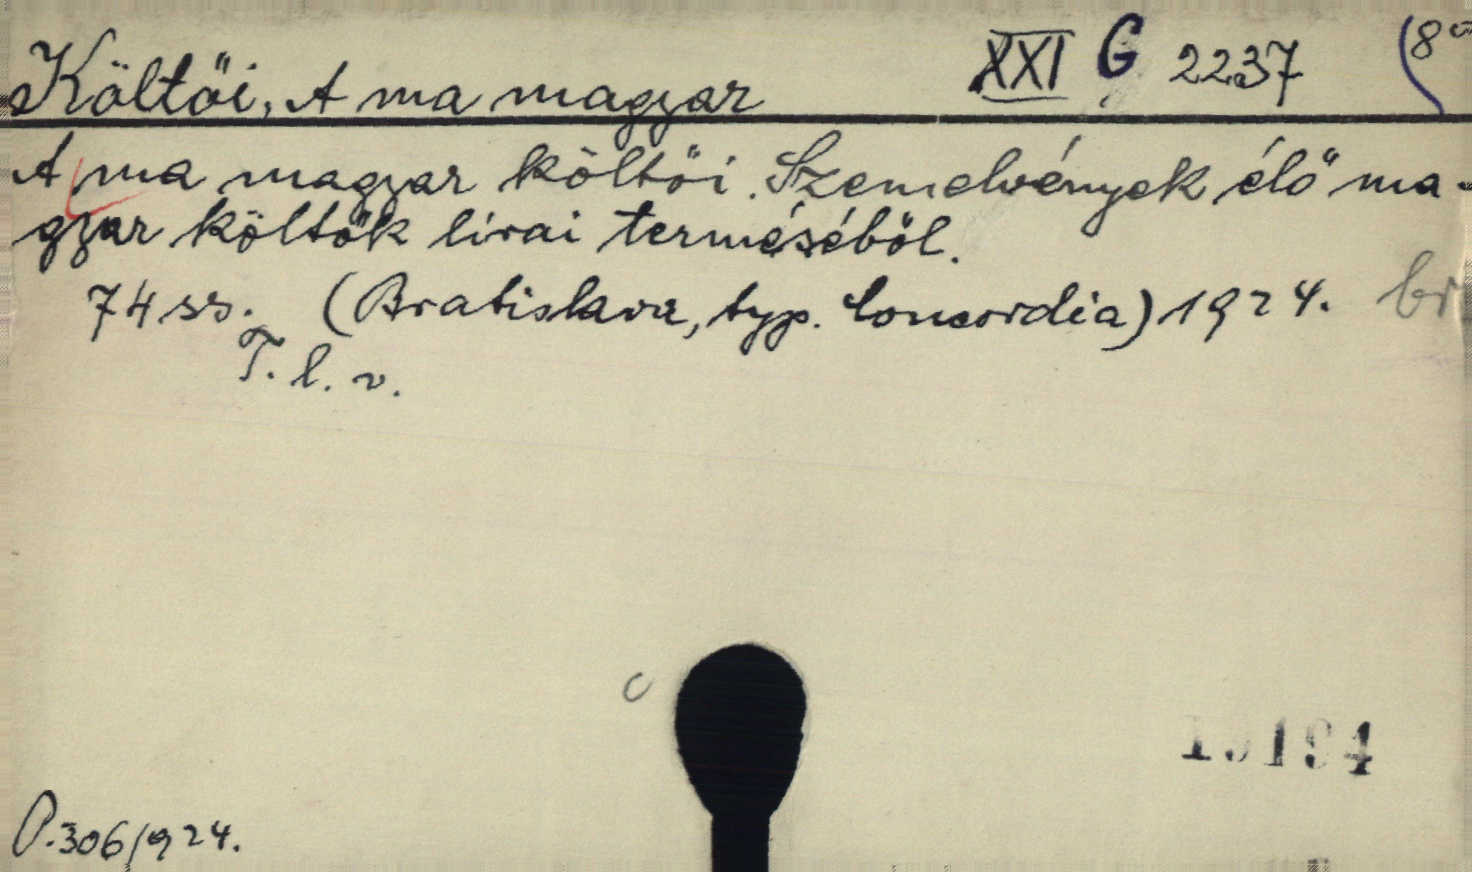 Költői, A ma magyar XXI G 2237 (8°
A ma magyar költői. Szemelvények élő ma-
gyar költők lírai terméséből.
74 ss. (Bratislava, typ. Concordia) 1924. br
T. l. v.
c
P.306/924.